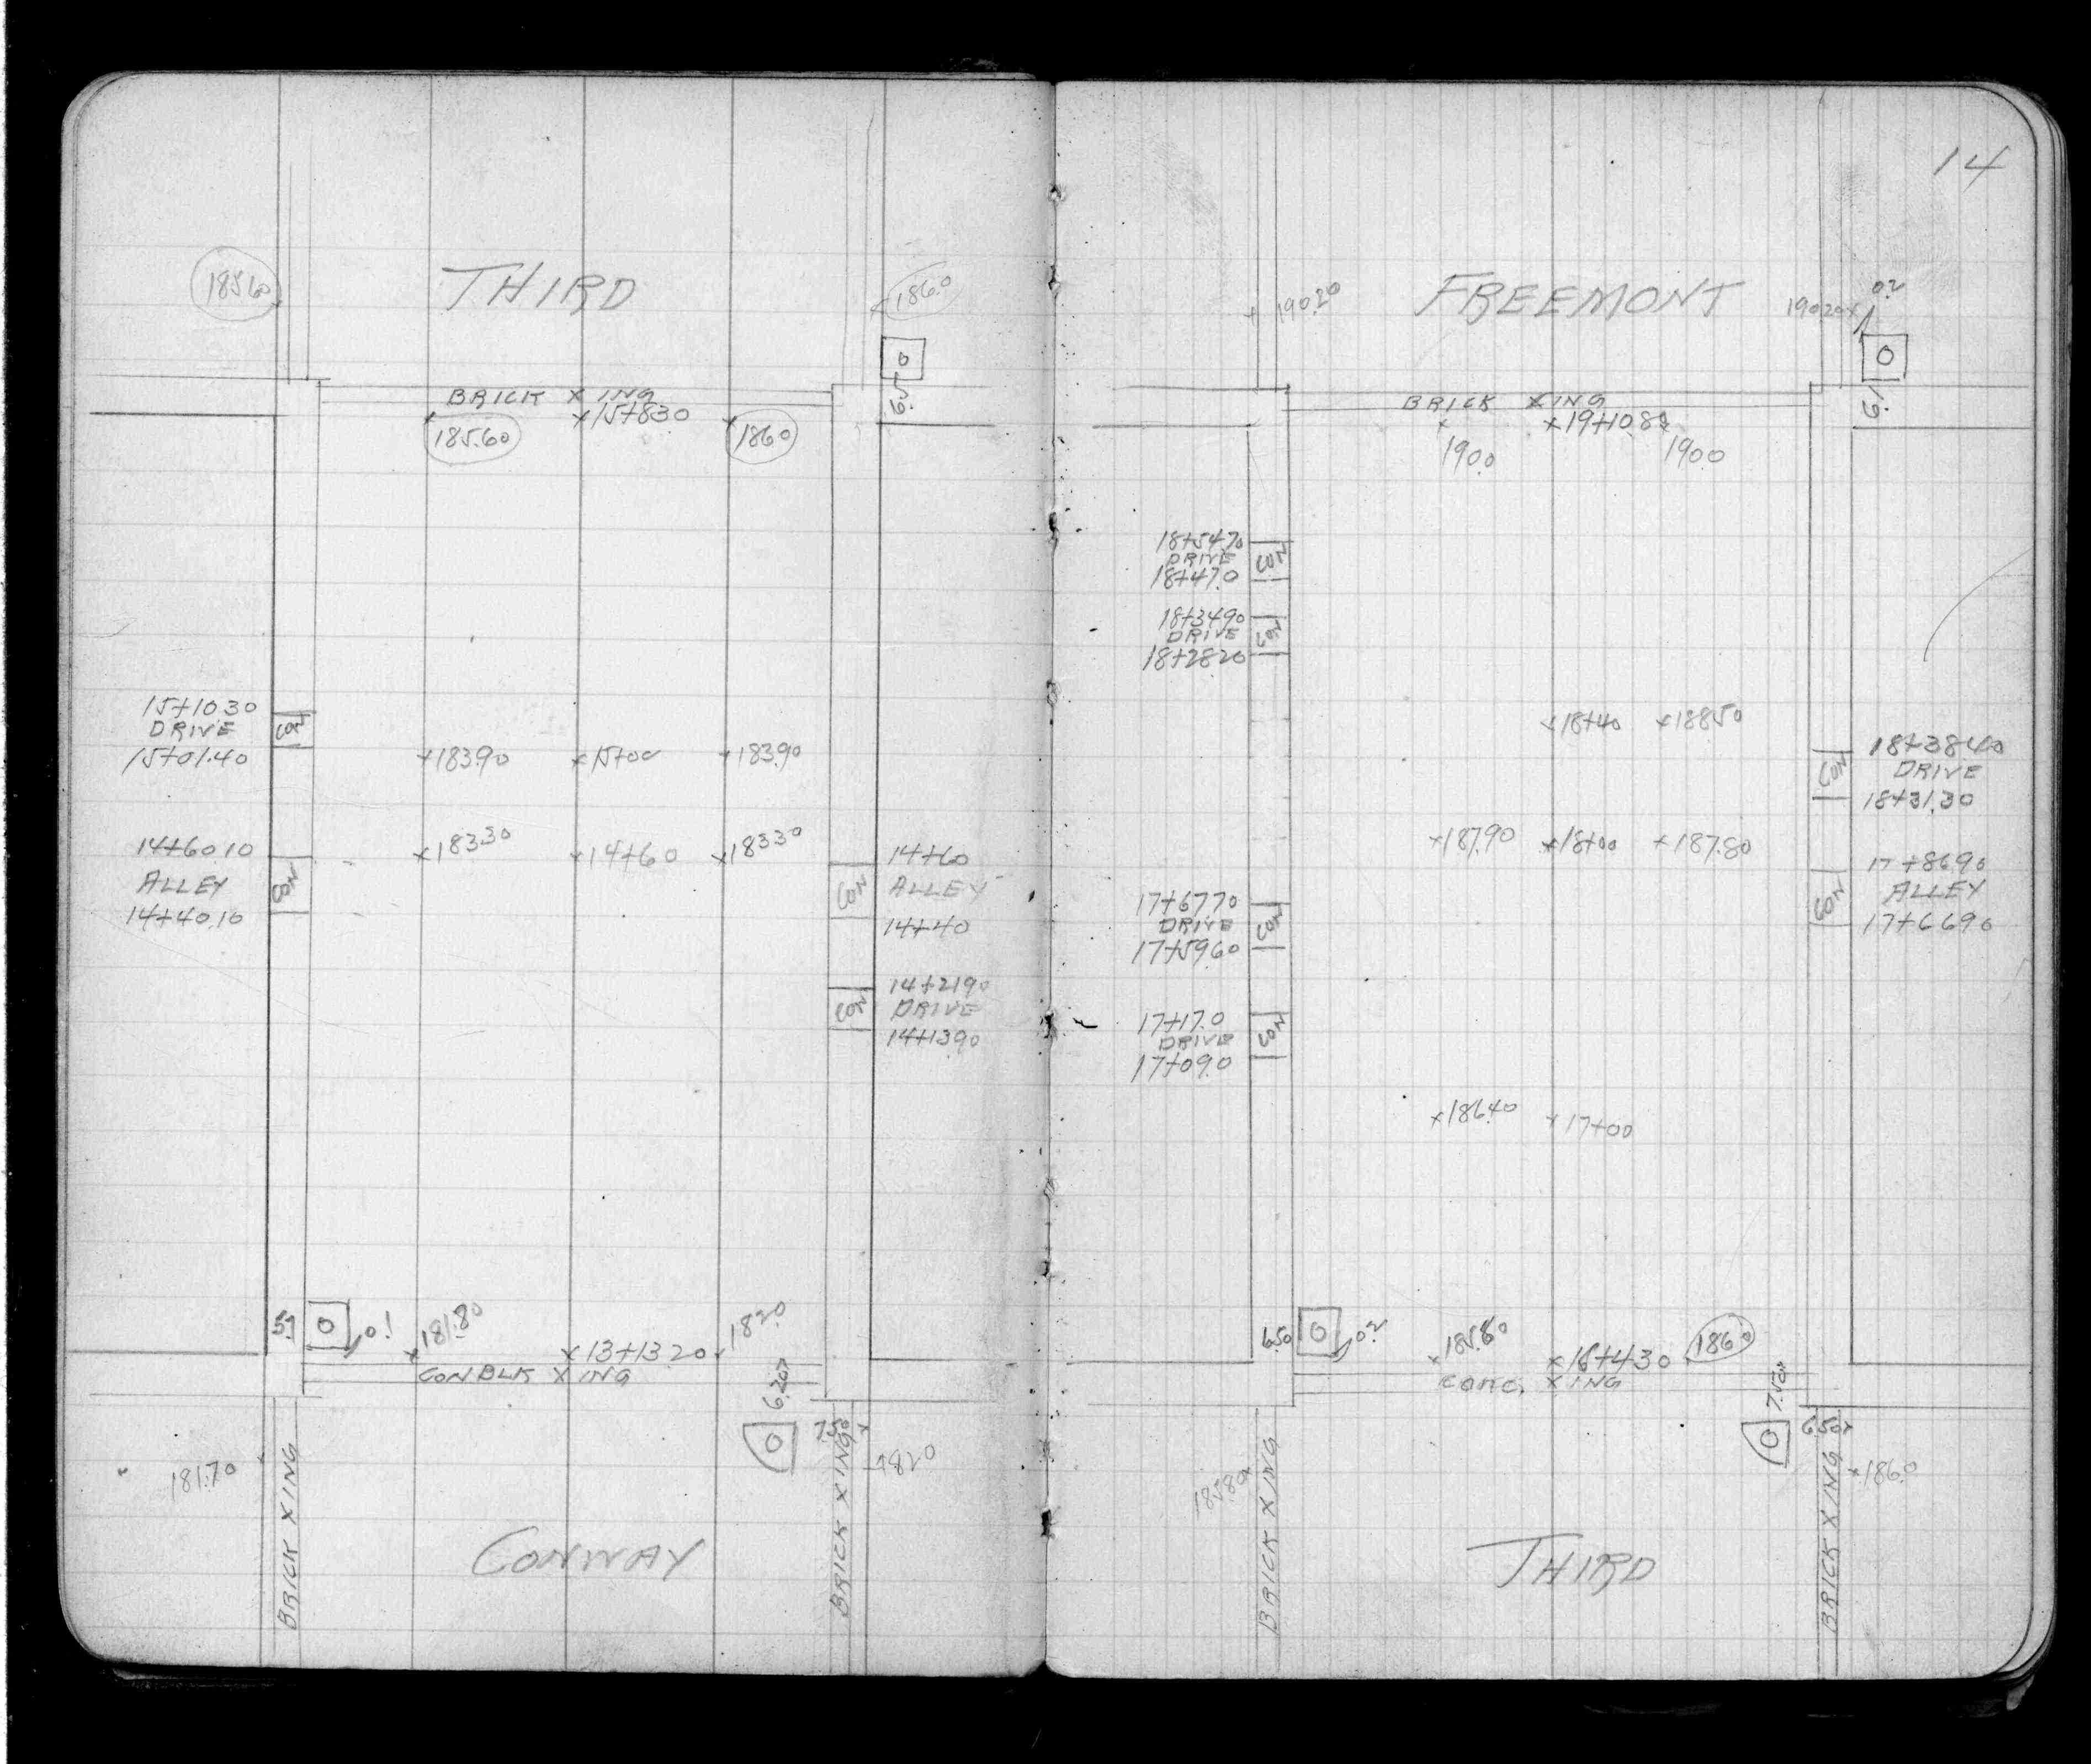 14
THIRD
185.60
186.0
0
6.50
BRICK X ING
x15+83.0
185.60
186.0
15+10.30
DRIVE
15+01.40
CON
x183.90
x15+00
x183.90
14+60.10
ALLEY
14+40.10
CON
x183.30
x14+60
x183.30
CON
14+60
ALLEY
14+40
CON
14+21.90
DRIVE
14+13.90
0
0.1
181.80
x13+13.20
182.0
CON BLK X ING
6.20
0
7.50
181.70
182.0
BRICK X ING
BRICK X ING
CONWAY
FREEMONT
190.20
190.20x
0.2
0
6.1
BRICK X ING
x19+10.8
190.0
190.0
18+54.70
DRIVE
18+47.0
CON
18+34.90
DRIVE
18+28.20
CON
x18+40
x188.50
CON
18+38.40
DRIVE
18+31.30
x187.90
x18+00
x187.80
CON
17+86.90
ALLEY
17+66.90
17+67.70
DRIVE
17+59.60
CON
17+17.0
DRIVE
17+09.0
CON
x186.40
x17+00
6.50
0
0.2
x185.80
x16+4.30
186.0
CONC. X ING
7.50
0
6.50
185.80x
x186.0
BRICK X ING
BRICK X ING
THIRD